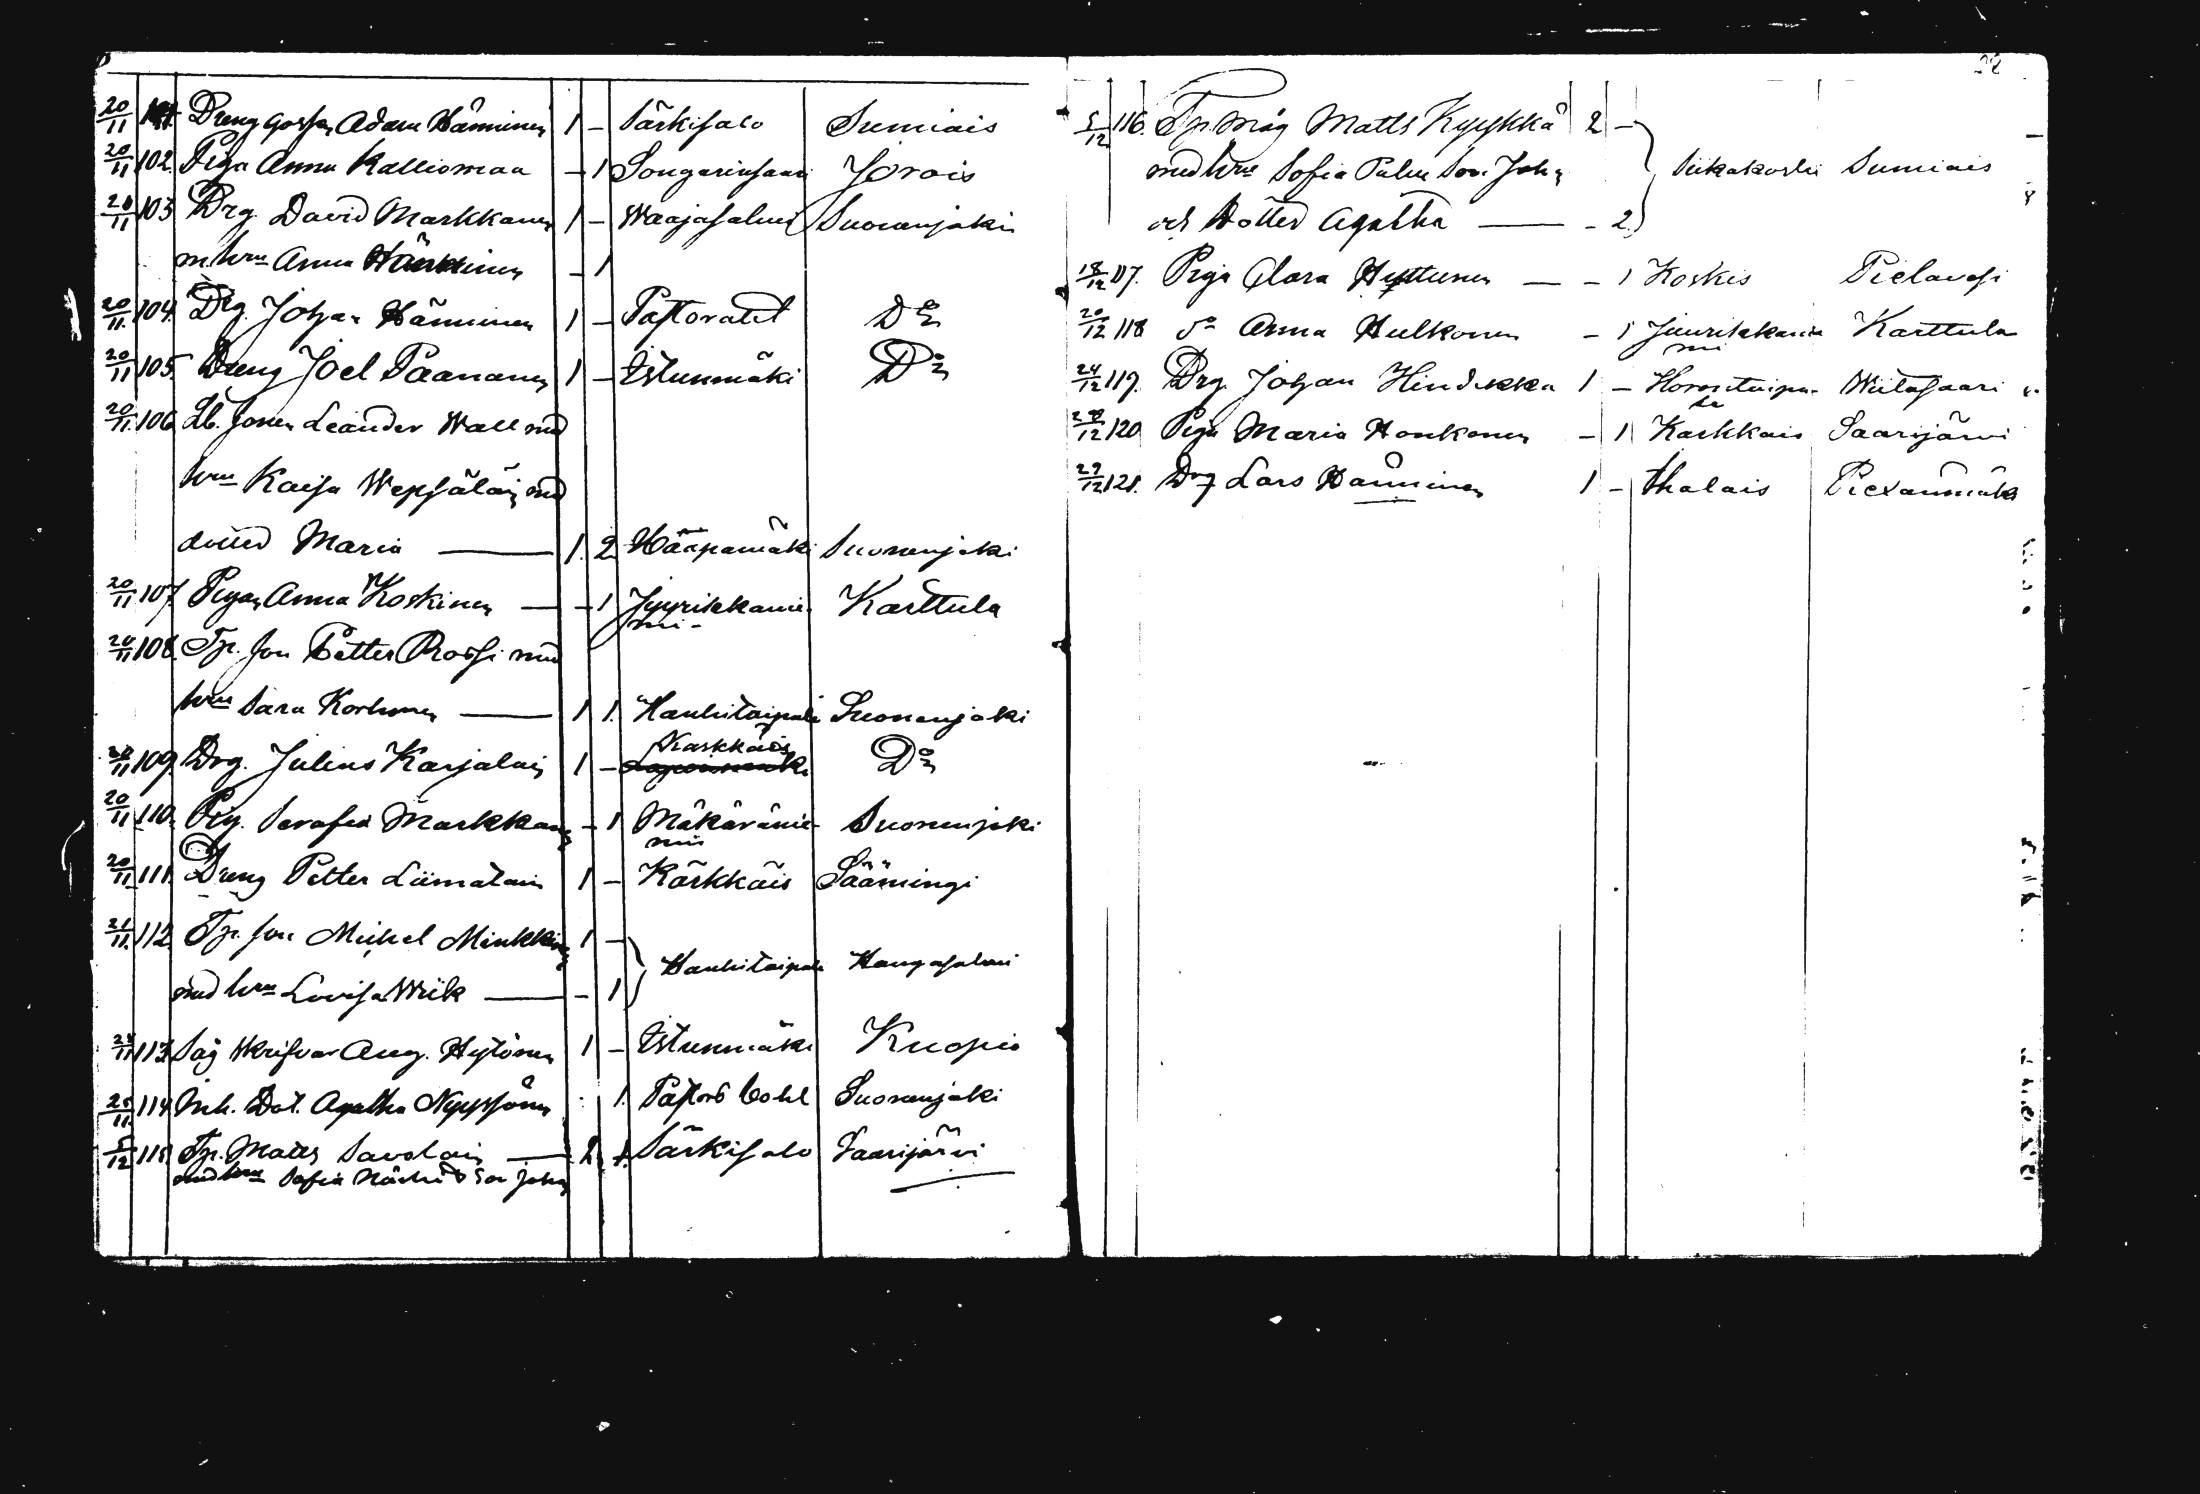 20/11 101 Dreng gossen Adam Hänninen 1 - Särkisalo Sumiais
20/11 102. Piga Anna Kalliomaa - 1 Songarinsaari Jorois
20/11 103 Drg. David Markkanen 1 - Waajasalmi Suonenjoki
m. hru Anna Hänninen - 1
20/11 104. Drg. Johan Hänninen 1 - Pastoratet Do
20/11 105. Dreng Joel Paananen 1 - Istunmäki Do
20/11 106 Leander Wall med
hru Kaisa Wepsäläin med
dotter Maria 1. 2 Hääpamäki Suonenjoki
20/11 107. Pigan Anna Koskinen - 1 Jyyrikkanie-
mi- Karttula
20/11 108. Tp. son Petter Rossi med
hru Sara Korhonen 1 1. Hankitaipale Suonenjoki
20/11 109. Drg. Julius Karjalain 1 - Karkkais Do
20/11 110. Pig. Serafia Markkanen - 1 Mäkäränie-
mi Suonenjoki
20/11 111. Dreng Petter Liimatain 1 - Kärkkäis Säämingi
21/11. 112. Tp. son Michel Minkkinen 1 -
med hru Lovisa Wiik - 1 Hankitaipale Hangasalmi
113. Aug. Hytönen 1 - Istunmäki Kuopio
25/11. 114. Inh. Dot. Agatha Nyyssönen 1. Pastors Suonenjoki
5/12 115. Tp. Matts Savolain 2. 1. Särkisalo Saarijärvi
med hru Sofia Son Johan
5/12 116. Tp. måg Matts Kyykkä 2 -
med hru Sofia Son Johan Siikakoski Sumiais
och Dotter Agatha - 2
18/12 117. Piga Clara Hyttinen - 1 Koskis Pielavesi
20/12 118 Do Anna Hulkonen - 1 Juurikkanie
mi Karttula
24/12 119. Drg. Johan Hindikka 1 - Wiitasaari
120. Piga Maria Honkonen - 1 Karkkais Saarijärvi
29/12 121. Drg Lars Hänninen 1 - Ihalais Piexänmäki